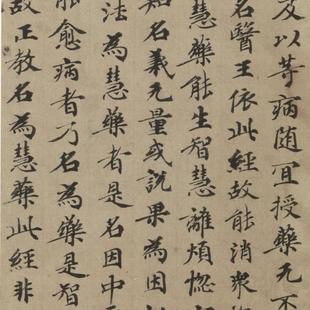 及以等病随宜授藥无不
名醫王依此經故能消衆
慧藥能生智慧離煩惚
知名義无量或說果為因
法為慧藥者是名因中
能愈病者乃名為藥是智
故正教名為慧藥此經非